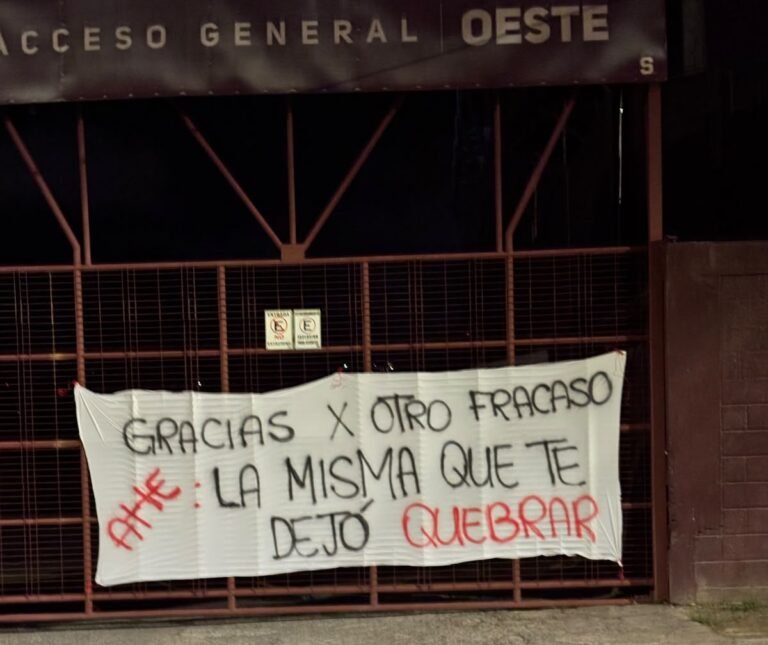 ACCESO GENERAL OESTE
S
GRACIAS X OTRO FRACASO
AHE: LA MISMA QUE TE
DEJÓ QUEBRAR